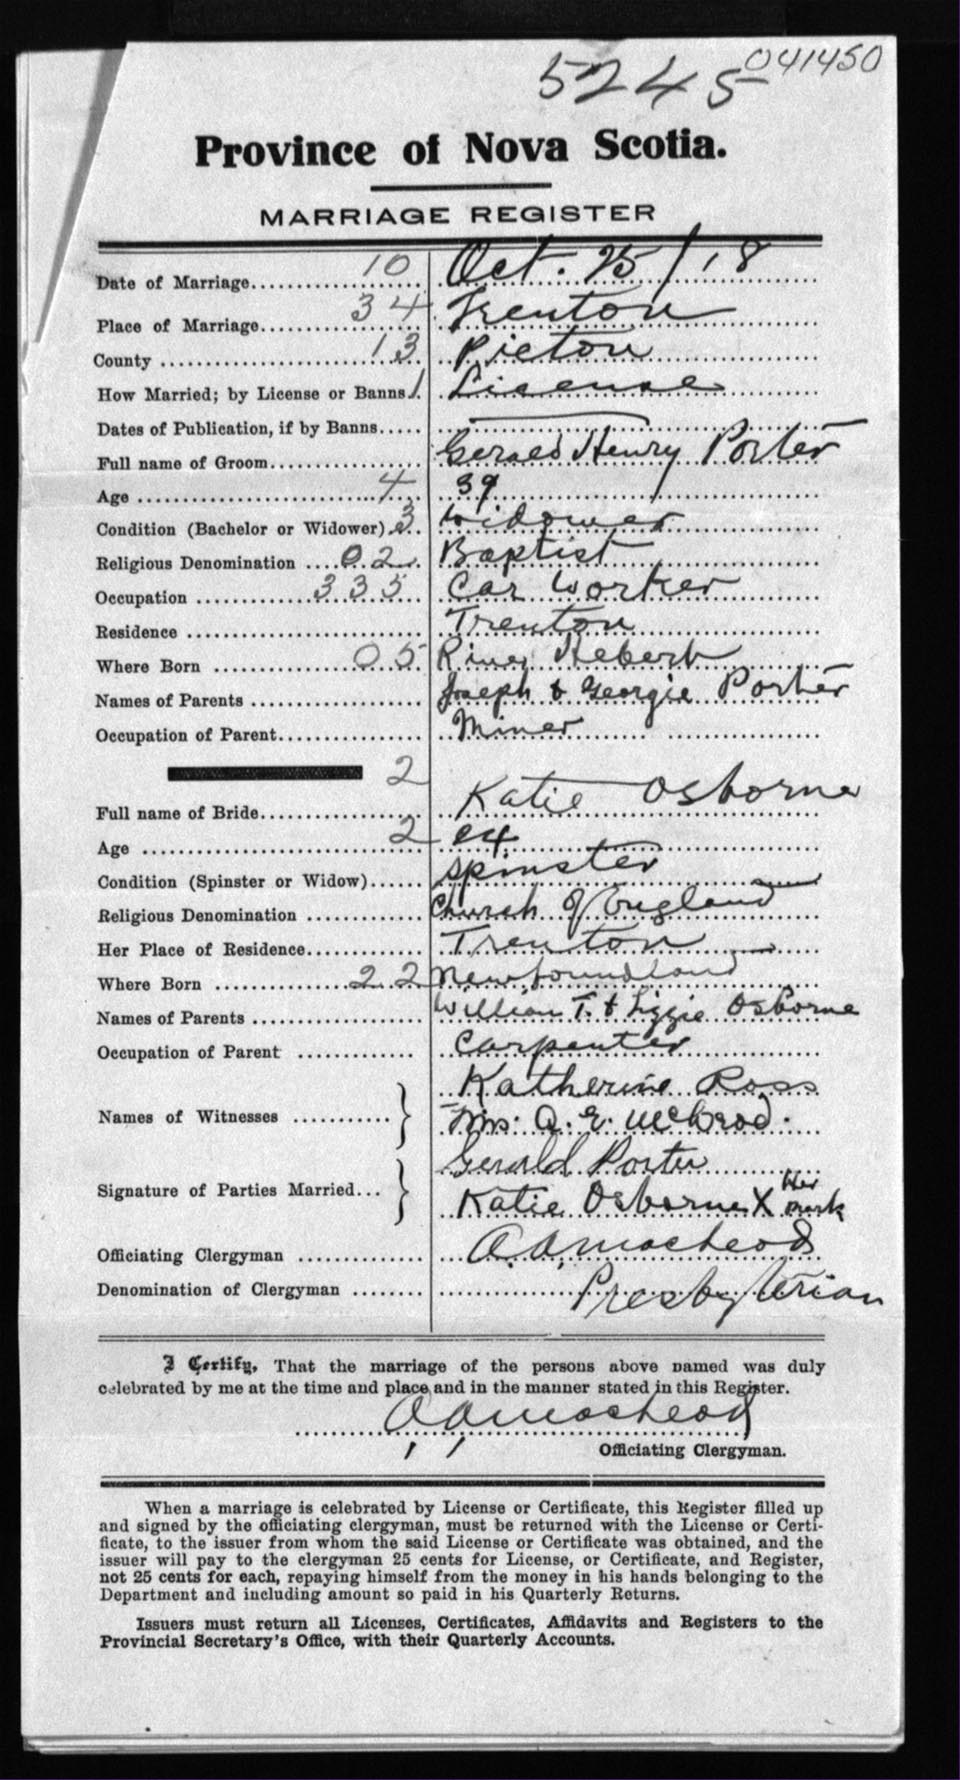 041450
5245
Province of Nova Scotia.
MARRIAGE REGISTER
Date of Marriage 10 Oct. 25/18
Place of Marriage 34 Trenton
County 13 Pictou
How Married; by License or Banns 1 License
Dates of Publication, if by Banns
Full name of Groom Gerald Henry Porter
Age 4 39
Condition (Bachelor or Widower) 3 Widower
Religious Denomination 02 Baptist
Occupation 335 Car Worker
Residence Trenton
Where Born 05 River Hebert
Names of Parents Joseph & Georgie Porter
Occupation of Parent Miner
2
Full name of Bride Katie Osborne
Age 2 24
Condition (Spinster or Widow) Spinster
Religious Denomination Church of England
Her Place of Residence Trenton
Where Born 22 Newfoundland
Names of Parents William T. & Lizzie Osborne
Occupation of Parent Carpenter
Katherine Ross
Names of Witnesses
Mrs. A. E. McLeod.
Gerald Porter
Signature of Parties Married...
Katie Osborne X Her mark
Officiating Clergyman A. D. MacLeod
Denomination of Clergyman Presbyterian
I Certify, That the marriage of the persons above named was duly
celebrated by me at the time and place and in the manner stated in this Register.
A. D. MacLeod
Officiating Clergyman.
When a marriage is celebrated by License or Certificate, this Register filled up
and signed by the officiating clergyman, must be returned with the License or Certi-
ficate, to the issuer from whom the said License or Certificate was obtained, and the
issuer will pay to the clergyman 25 cents for License, or Certificate, and Register,
not 25 cents for each, repaying himself from the money in his hands belonging to the
Department and including amount so paid in his Quarterly Returns.
Issuers must return all Licenses, Certificates, Affidavits and Registers to the
Provincial Secretary's Office, with their Quarterly Accounts.